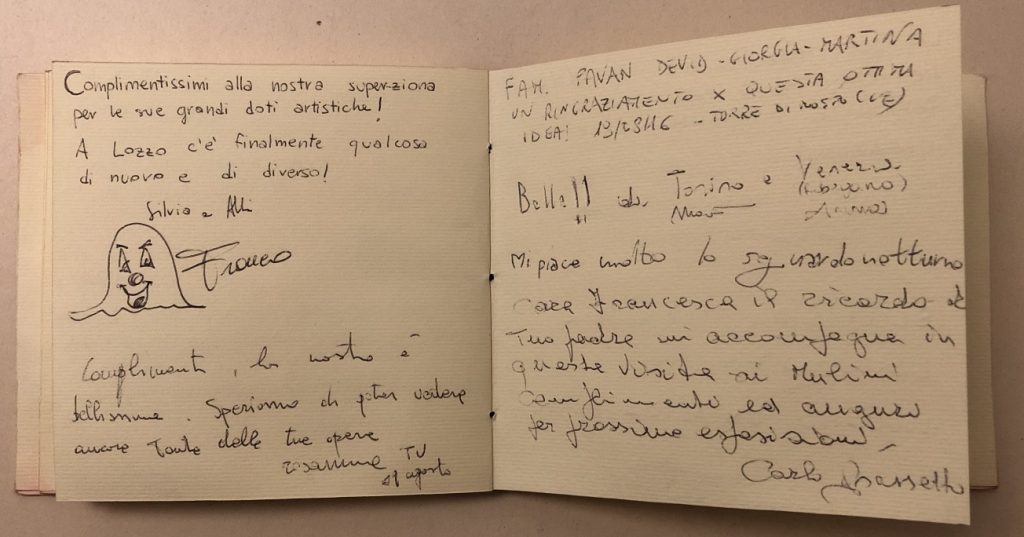 Complimentissimi alla nostra super-ziona
per le sue grandi doti artistiche!
A Lozzo c'è finalmente qualcosa
di nuovo e di diverso!
Silvia e
Franco
Complimenti, la mostra è
bellissima. Speriamo di poter vedere
ancora tante delle tue opere
rosanna TV
21 agosto
FAM. FAVAN DEVID - GIORGIA - MARTINA
UN RINGRAZIAMENTO X QUESTA OTTIMA
IDEA! - TORRE DI MOSTO (VE)
Bella!! da Torino e Venezia
Mi piace molto lo sguardo notturno
cara Francesca il ricordo di
Tuo padre mi accompagna in
queste visite ai Mulini
complimenti ed auguri
per prossime esposizioni
Carlo